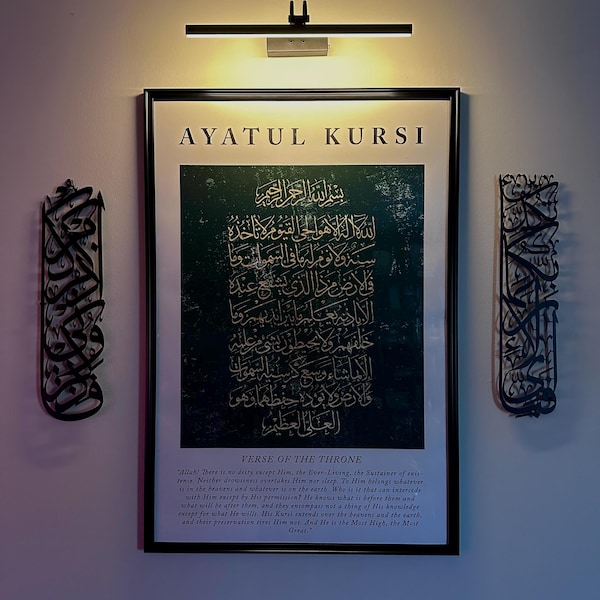 AYATUL KURSI
بسم الله الرحمن الرحيم
الله لا إله إلا هو الحي القيوم لا تأخذه
سنة ولا نوم له ما في السموات وما
في الأرض من ذا الذي يشفع عنده
إلا بإذنه يعلم ما بين أيديهم وما
خلفهم ولا يحيطون بشيء من علمه
إلا بما شاء وسع كرسيه السموات
والأرض ولا يؤده حفظهما وهو
العلي العظيم
VERSE OF THE THRONE
"Allah! There is no deity except Him, the Ever-Living, the Sustainer of exis-
tence. Neither drowsiness overtakes Him nor sleep. To Him belongs whatever
is in the heavens and whatever is on the earth. Who is it that can intercede
with Him except by His permission? He knows what is before them and
what will be after them, and they encompass not a thing of His knowledge
except for what He wills. His Kursi extends over the heavens and the earth,
and their preservation tires Him not. And He is the Most High, the Most
Great."